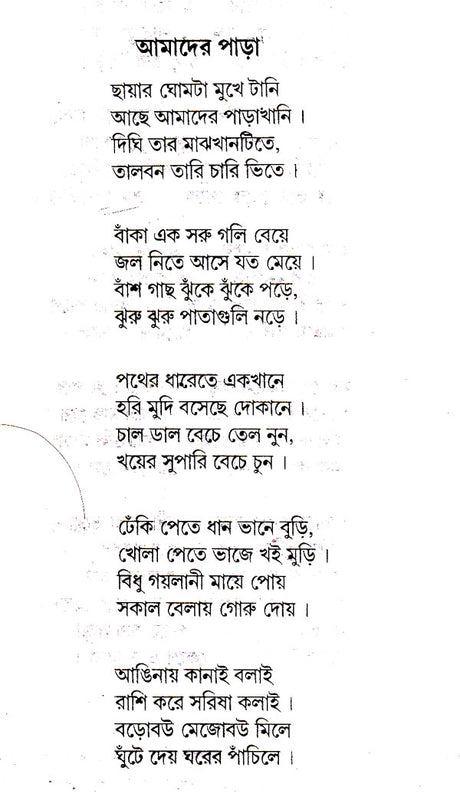 আমাদের পাড়া
ছায়ার ঘোমটা মুখে টানি
আছে আমাদের পাড়াখানি ।
দিঘি তার মাঝখানটিতে,
তালবন তারি চারি ভিতে ।
বাঁকা এক সরু গলি বেয়ে
জল নিতে আসে যত মেয়ে ।
বাঁশ গাছ ঝুঁকে ঝুঁকে পড়ে,
ঝুরু ঝুরু পাতাগুলি নড়ে ।
পথের ধারেতে একখানে
হরি মুদি বসেছে দোকানে ।
চাল ডাল বেচে তেল নুন,
খয়ের সুপারি বেচে চুন ।
ঢেঁকি পেতে ধান ভানে বুড়ি,
খোলা পেতে ভাজে খই মুড়ি ।
বিধু গয়লানী মায়ে পোয়
সকাল বেলায় গোরু দোয় ।
আঙিনায় কানাই বলাই
রাশি করে সরিষা কলাই ।
বড়োবউ মেজোবউ মিলে
ঘুঁটে দেয় ঘরের পাঁচিলে ।